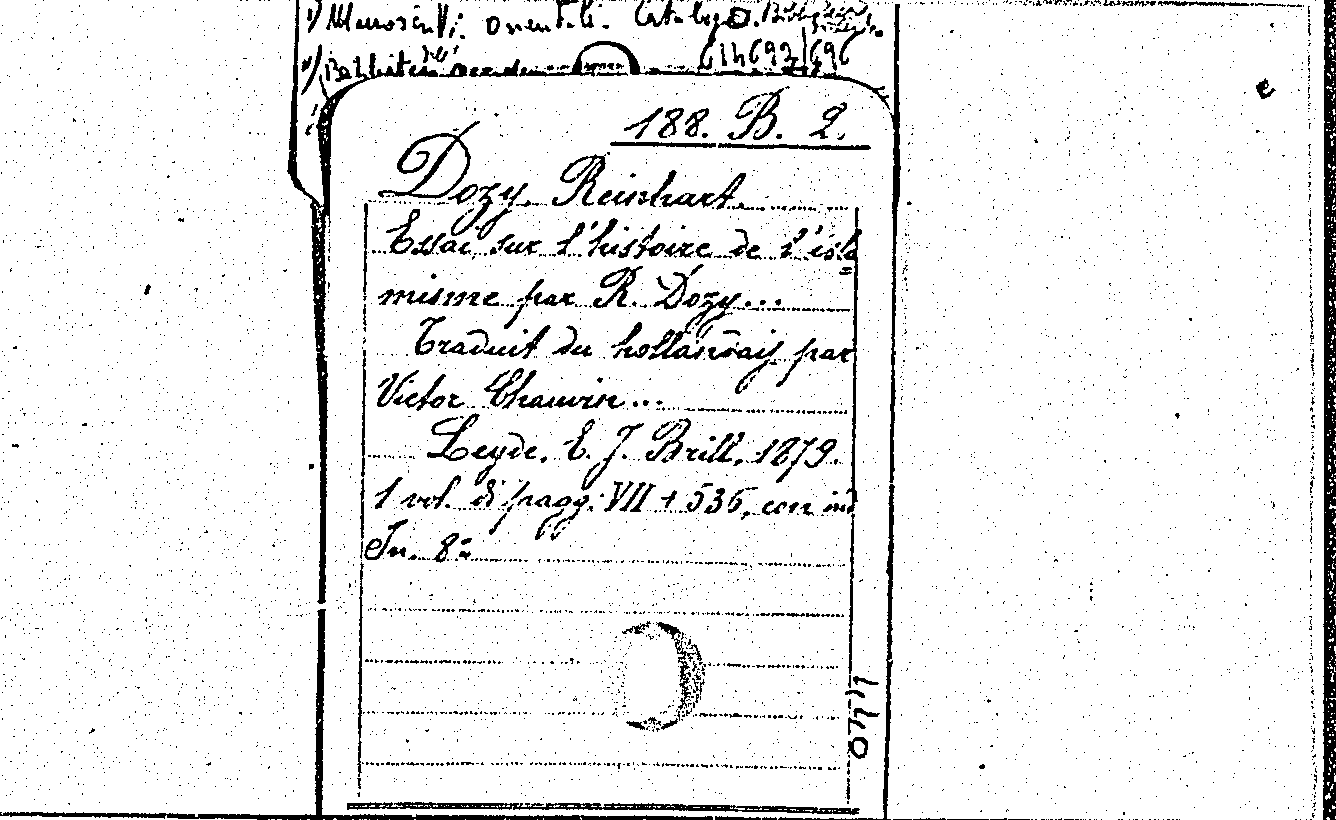 1) Manoscritti orientali. Catalogo.
188. B. 2.
Dozy, Reinhart.
Essai sur l'histoire de l'isla
misme par R. Dozy...
Traduit du hollandais par
Victor Chauvin...
Leyde, E. J. Brill, 1879.
1 vol. di pagg. VII + 536, con ind
In. 8º